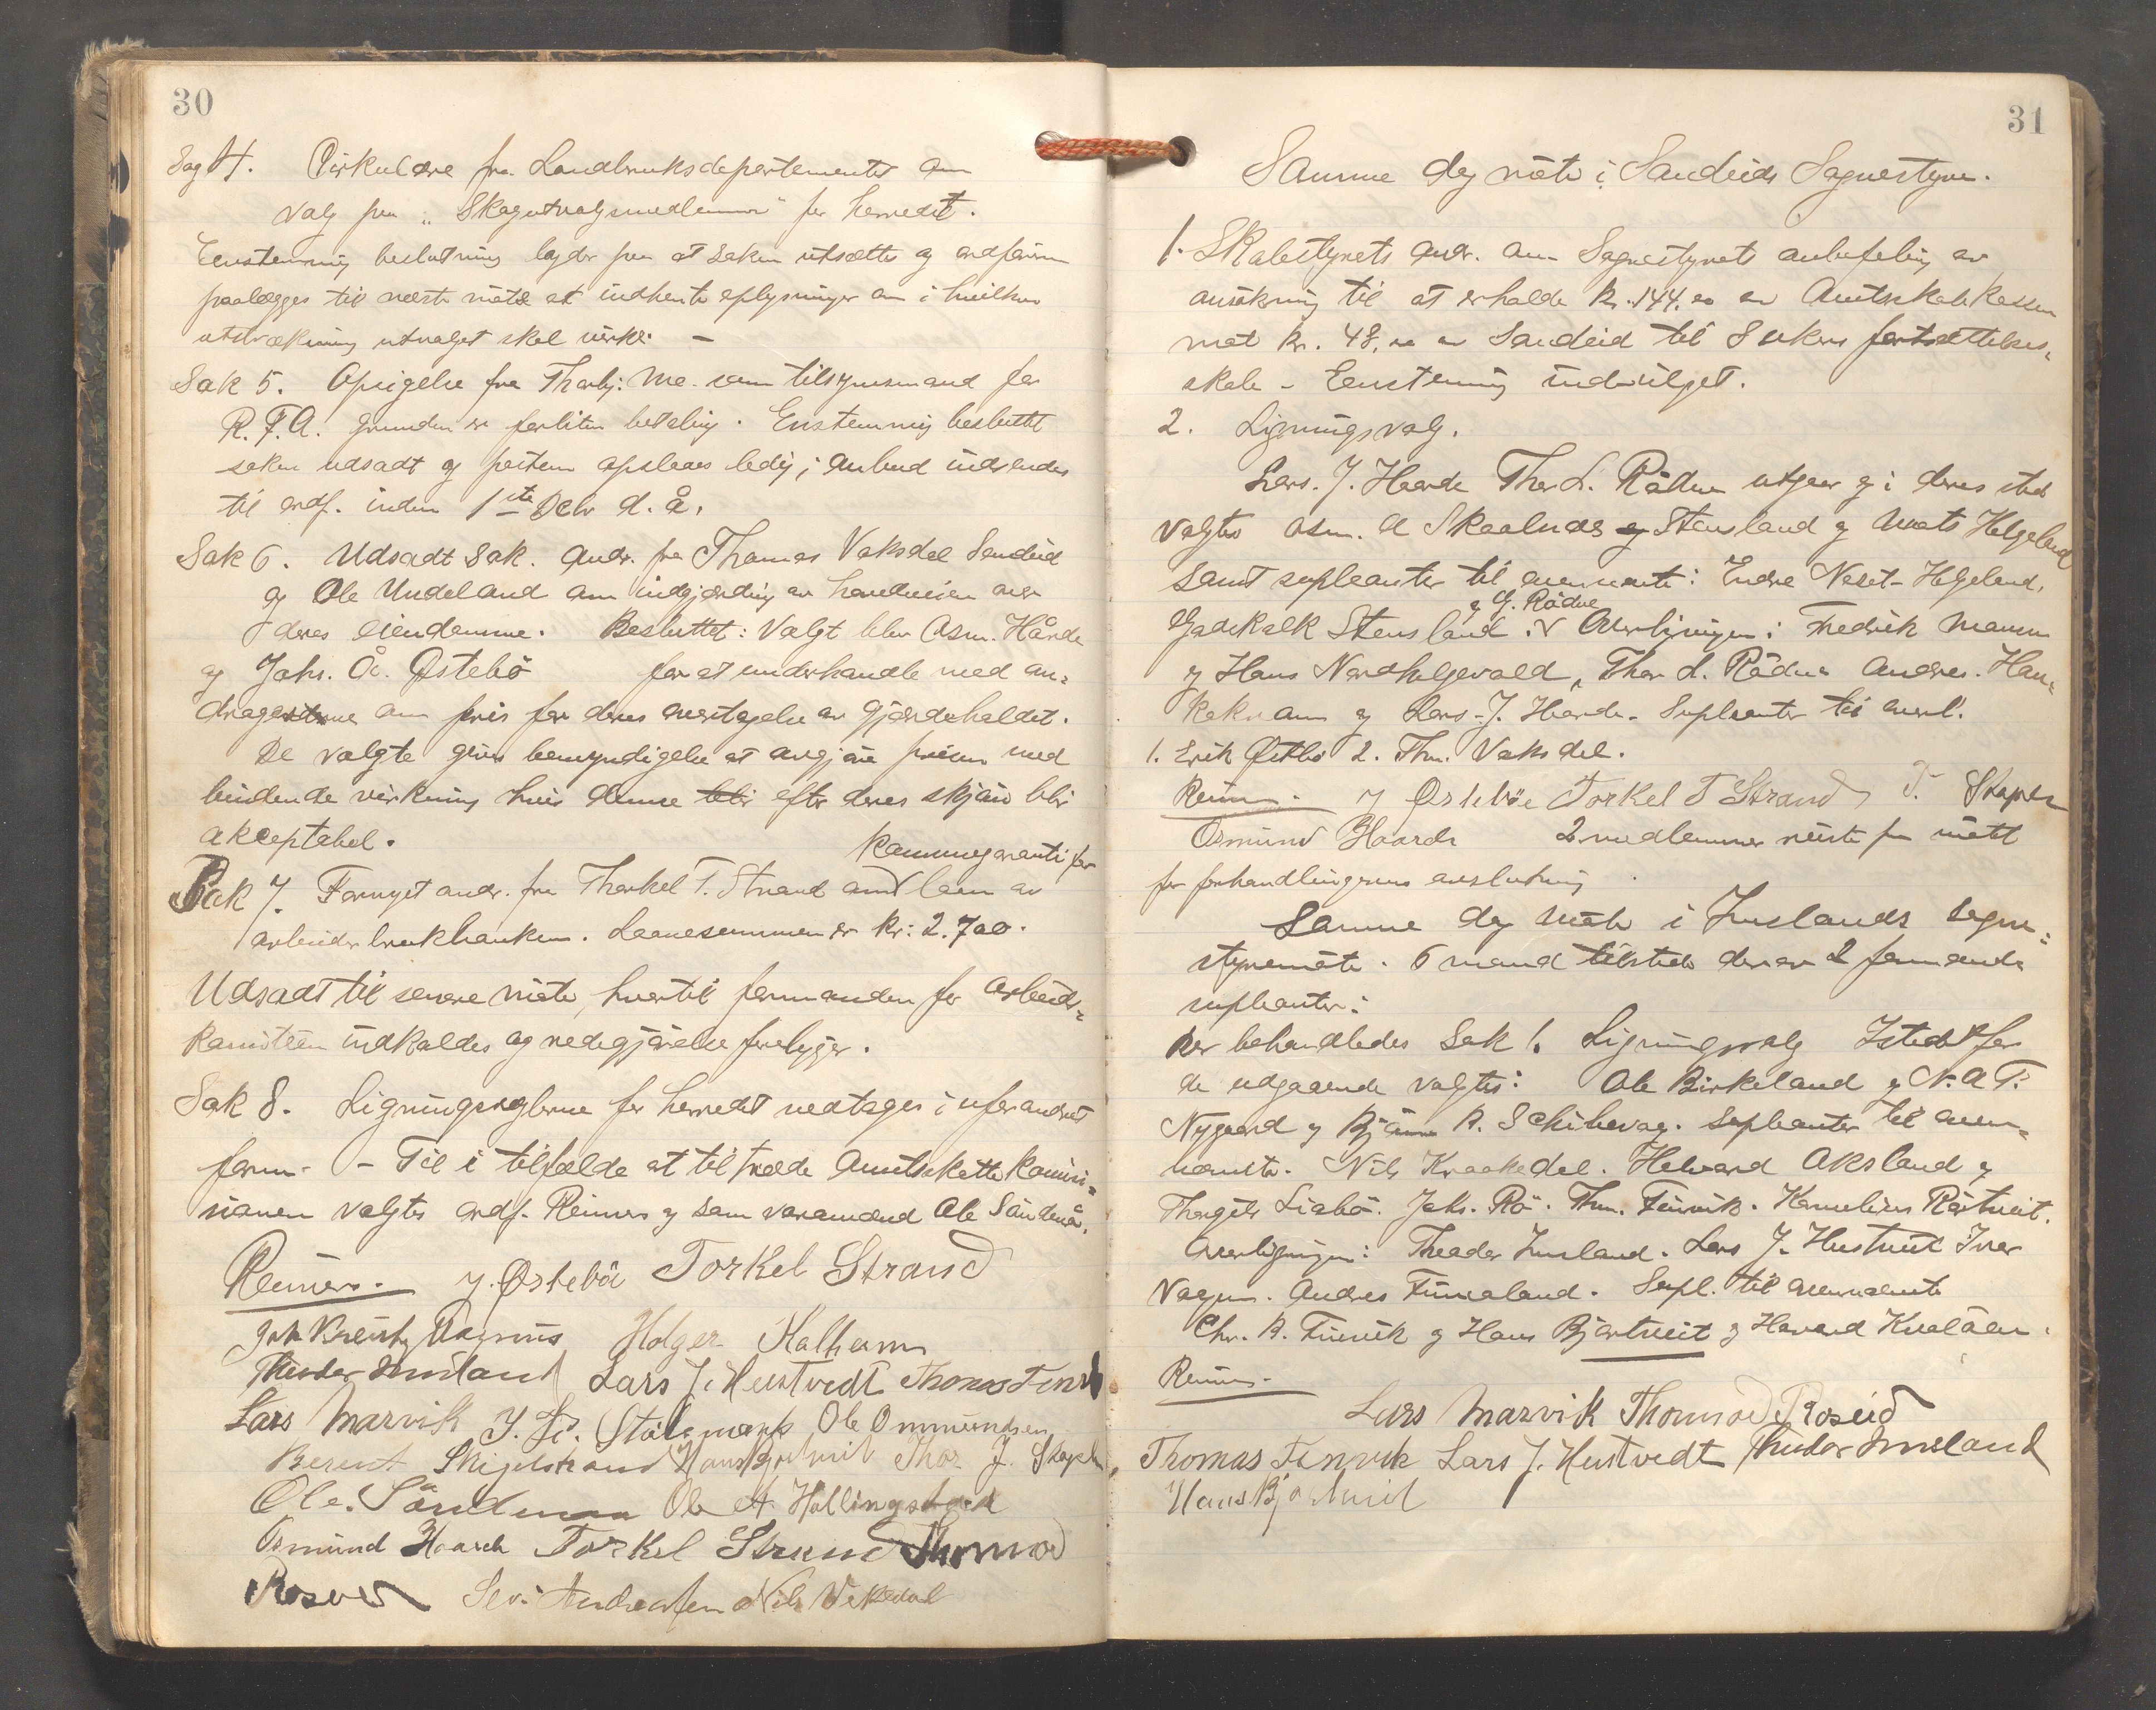 30
Sag 4. Cirkulære fra Landbruksdepartementet om
valg paa "Skogutvalgsmedlemmer" for herredet.
Eenstemmig beslutning lyder paa at saken utsættes og ordføreren
paalægges til næste møte at indhente oplysninger om i hvilken
utstrækning utvalget skal virke. —
Sak 5. Opsigelse fra Thorbj: Mo som tilsynsmand for
R.F.A. Grunden er forliten betaling. Enstemmig besluttet
saken udsadt og posten opslaaes ledig; Anbud indsendes
til ordf. inden 1ste Debr d. å.
Sak 6. Udsadt Sak. Andr. fra Thomas Vaksdal Sandeid
og Ole Undeland om indgjærding av hovedveien over
deres eiendomme. Besluttet: Valgt blev Asm. Hårde
og Johs. Å. Østebö for at underhandle med an=
dragerne om pris for deres overtagelse av gjærdeholdet.
De valgte gives bemyndigelse at avgjøre prisen med
bindende virkning hvis denne efter deres skjön blir
akceptabel.
kommunegaranti for
Sak 7. Fornyet andr. fra Thorkel T. Strand om laan av
arbeiderbrukbanken. Laanesummen er Kr: 2.700.
Udsadt til senere möte, hvortil formanden for arbeider=
komiteen indkaldes og redegjörelse forelygger.
Sak 8. Ligningsreglerne for herredet vedtages i uforandret
form. - Til i tilfælde at tiltræde Amtsskattekommi=
sionen valgtes ordf. Reimers og som varamand Ole Söndenå.
Reimers. J. Östebö Torkel Strand
Joh Breisthy Magnus Holger Kalheim
Theodor Imsland Lars J. Hustvedt Thomas Finvik
Lars Marvik J. Fr. Stålemark Ole Ommundsen
Berent Skigelstrand Hans Bjortveit Thor J. Skaple
Ole. Söndenaa Ole A Hallingstad
Osmund Haarde Torkel Strand Thormod
Roseid Sev. Andreassen Nils Vikedal
31
Samme dag möte i Sandeids Sognestyre.
1. Skolestyrets andr. om Sognestyrets anbefaling av
ansökning til at erholde Kr. 144.00 av Amtsskolekassen
mot Kr. 48.00 av Sandeid til 8 ukers fortsættelses=
skole - Eenstemmig indvilget.
2. Ligningsvalg.
Lars. J. Haarde Thor L. Rödne utgaar og i deres sted
valgtes Asm. A Skaalnes Stensland og Mats Helgeland
samt supleanter til ovennævnte: Endre Neset-Helgeland,
og G. Rödne
Gadskalk Stensland. V Overligningen: Fredrik Mannes
og Hans Nordhelgevold, Thor L. Rödne Andreas. Han=
kakvam og Lars. J. Haarde. Supleanter til overl.
1. Erik Östbö 2. Thm. Vaksdal.
Reimers. J Östeböe Torkel T Strand T. Skaple
Osmund Haarde 2 medlemmer reiste fra mötet
för forhandlingernes avslutning.
Samme dag möte i Imslands sogne=
styremöte. 6 mand tilstede derav 2 formænds
supleanter.
Der behandledes Sak 1. Ligningsvalg Istedetfor
de udgaaende valgtes: Ole Birkeland og N. A T.
Nygaard og Björn K. Schibevag. Supleanter til oven=
nævnte. Nils Kraakedal. Halvard Aksland og
Thorgils Liabö. Johs. Rö. Thm. Finvik. Kornelius Röstveit.
Overligningen: Theodor Imsland. Lars J. Hustveit Iver
Vagen. Andres Finnaland. Supl. til ovennævnte
Chr. K. Finvik og Hans Bjortveit og Havard Kvalåen.
Reimers.
Lars Marvik Thormod Roseid
Thomas Finvik Lars J. Hustvedt Theodor Imsland
Hans Bjortveit